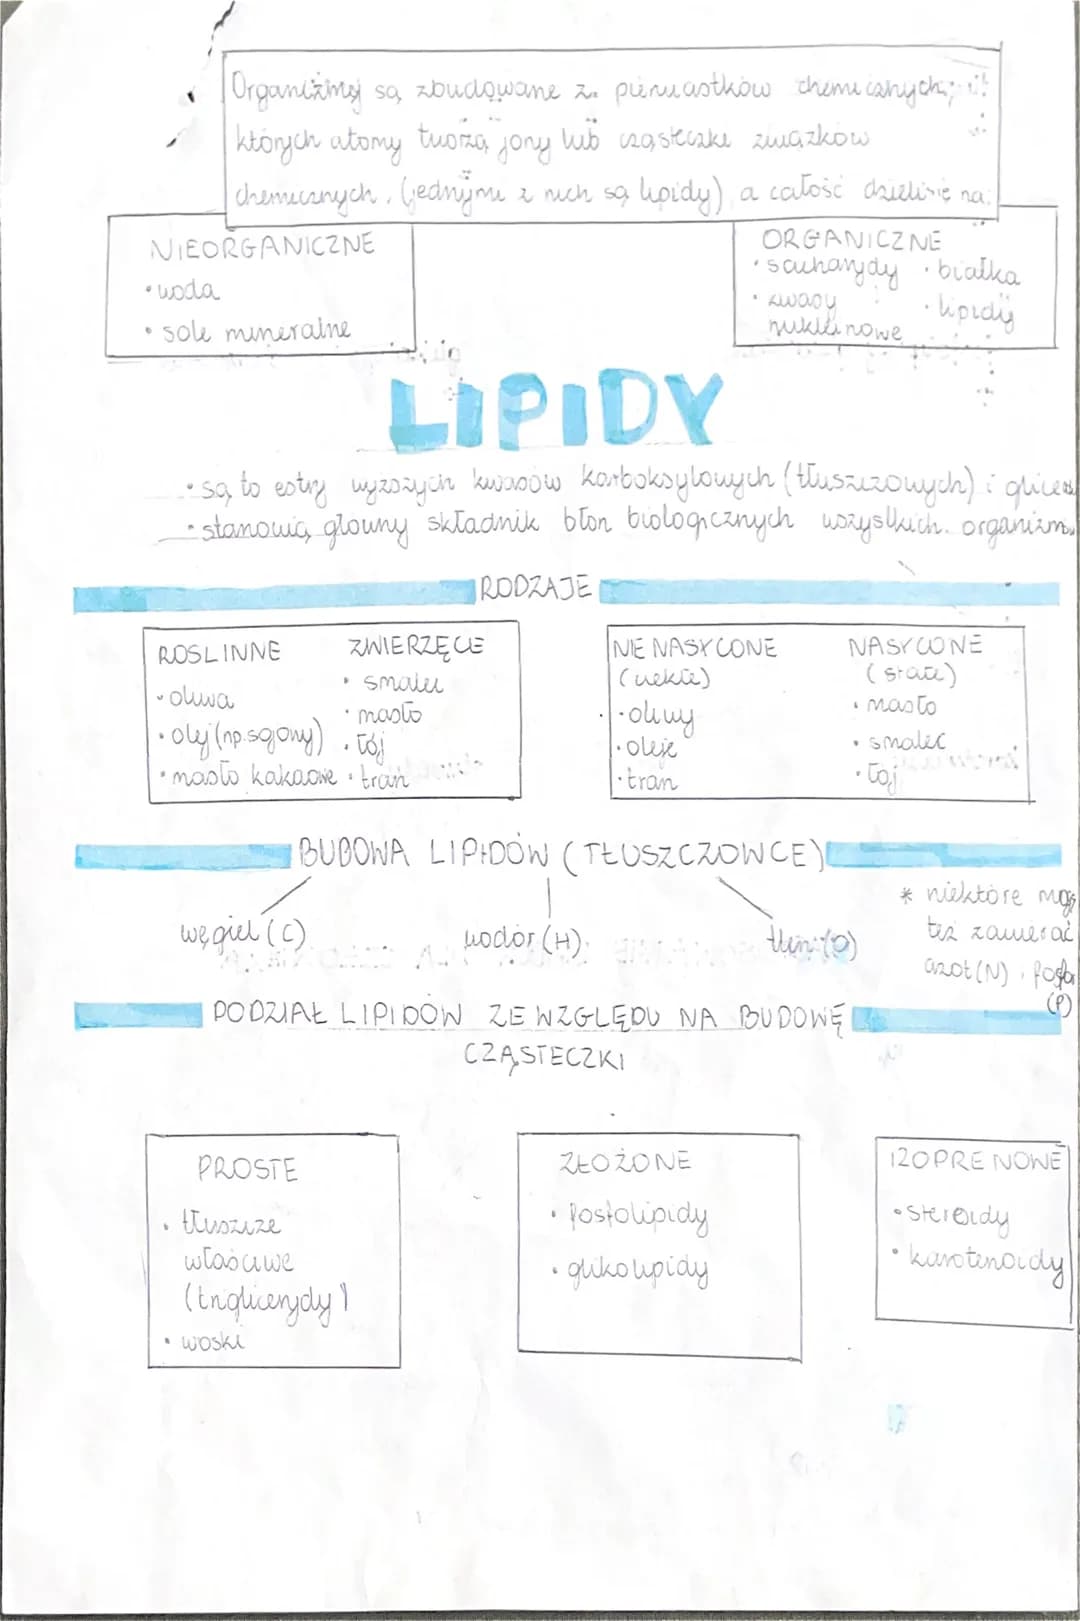 Organizmy są zbudowane z pierwiastków chemicznych,
których atomy tworzą jony lub cząsteczki związków
chemicznych. (jednymi z nich są lipidy) a całość dzieli się na:
NIEORGANICZNE
• woda
• sole mineralne
ORGANICZNE
• sacharydy • białka
• kwasy • lipidy
nukleinowe
LIPIDY
• są to estry wyższych kwasów karboksylowych (tłuszczowych) i
• stanowią główny składnik błon biologicznych wszystkich
RODZAJE
ROSLINNE
• oliwa
• olej (np. sojowy)
• masło kakaowe
ZWIERZĘCE
• smalec
• masło
• łój
• tran
NIENASYCONE
(ciekłe)
• oliwy
• oleje
• tran
NASYCONE
(stałe)
• masło
• smalec
• łój
BUDOWA LIPIDÓW (TŁUSZCZOWCE)
węgiel (C) wodór (H) tlen (O)
* niektóre mogą
też zawierać
azot (N) i
(P)
PODZIAŁ LIPIDÓW ZE WZGLĘDU NA BUDOWĘ
CZĄSTECZKI
PROSTE
• tłuszcze
właściwe
(triglicerydy)
• woski
ZŁOŻONE
• fosfolipidy
• glikolipidy
IZOPRENOWE
• steroidy
• karotenoidy